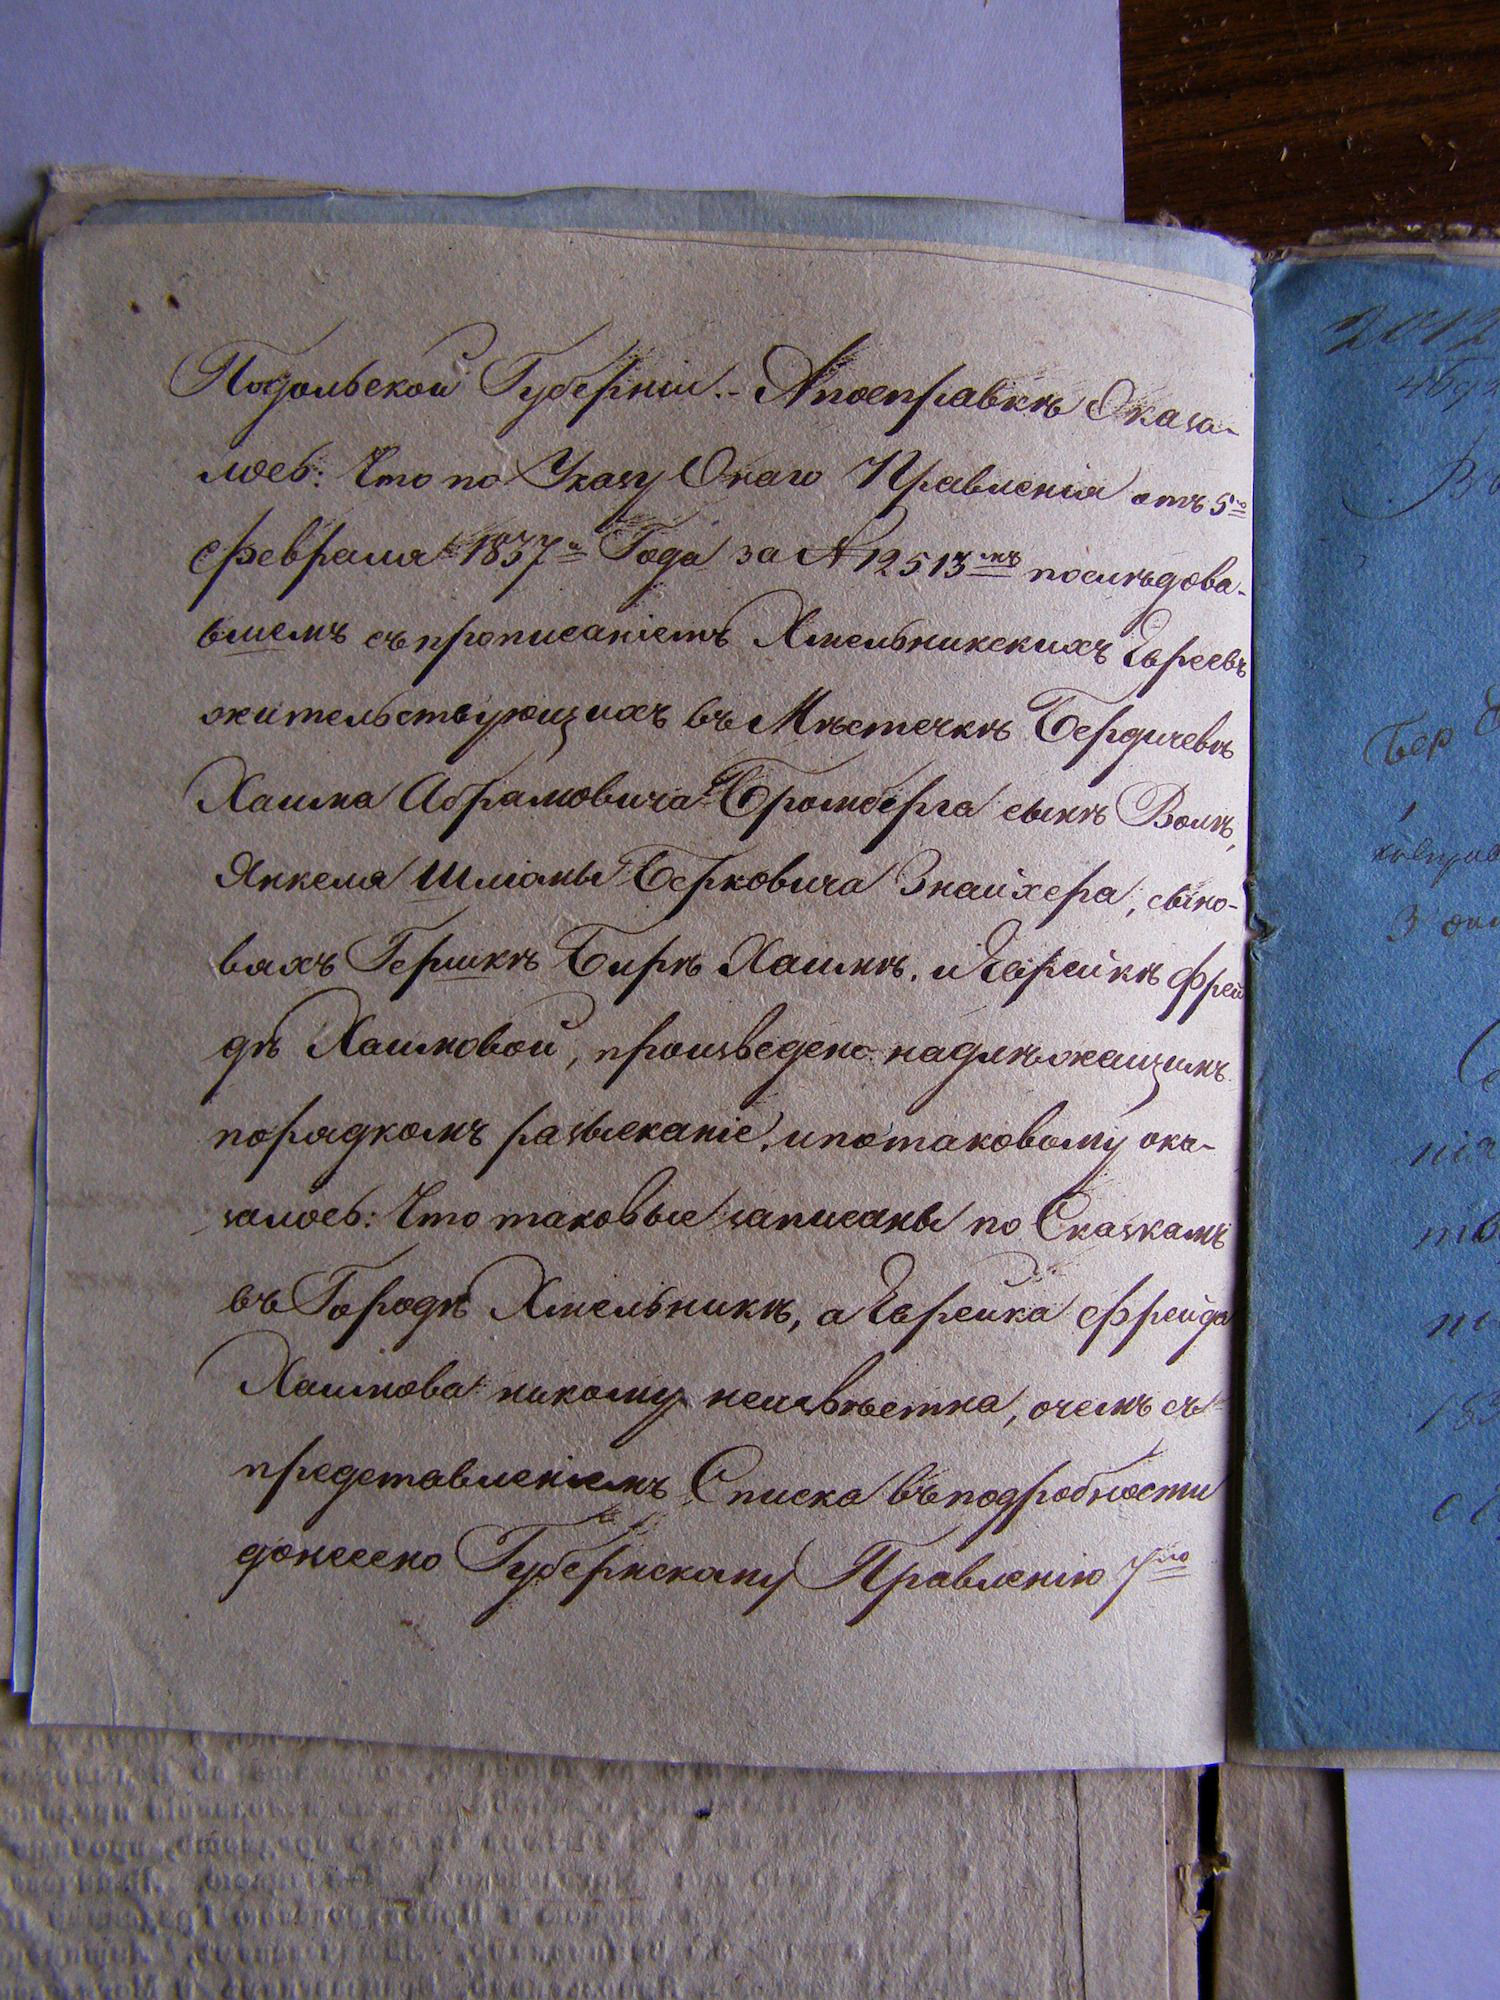 Подольской Губерніи. – А посправкѣ Оказа-
лось: Что по Указу Онаго Правленія отъ 5го
февраля 1837го Года за № 12513мъ последова-
вшемъ съ прописаніемъ Хмельникскихъ Евреевъ
жительствующихъ въ Мѣстечкѣ Бердичевѣ
Хаима Абрамовича Бромберга сынѣ Волѣ,
Янкеля Шліомы Берковича Знайхера, сыно-
вяхъ Гершкѣ Бирѣ Хаимѣ. и Еврейкѣ Фрей
дѣ Хаимовой, произведено надлѣжащимъ
порядкомъ разысканіе, ипотаковому ока-
залось: Что таковые записаны по Сказкамъ
въ Городѣ Хмельникѣ, а Еврейка Фрейда
Хаимова никому неизвѣстна, очемъ съ
представленіемъ Списка въподробности
донесено Губернскому Правленію 7го
2012
Бер
нія
183